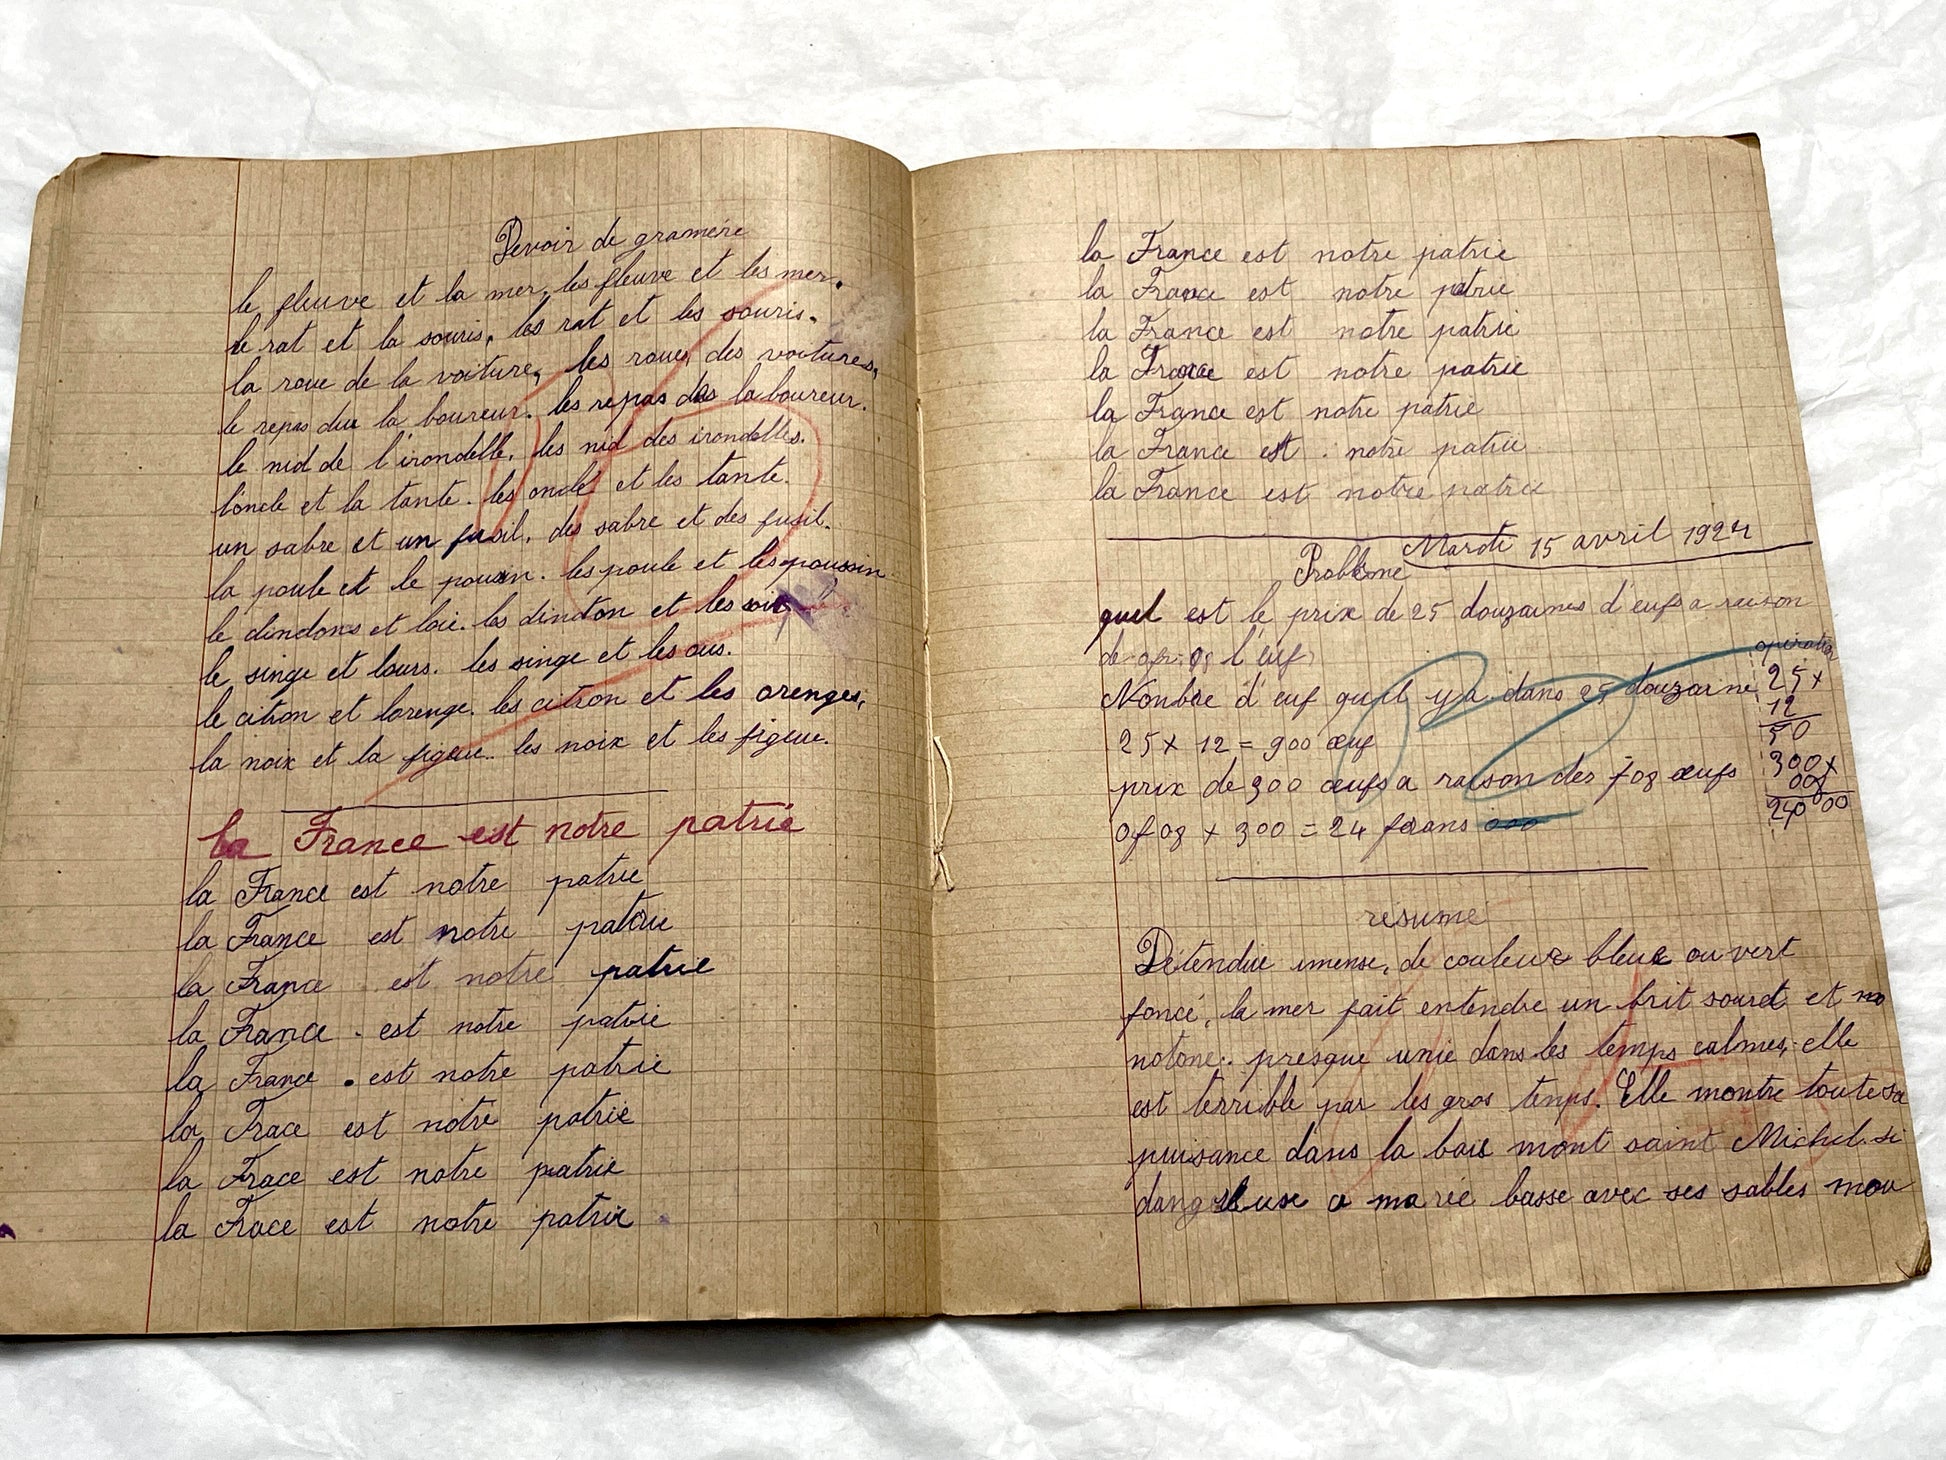 Devoir de gramére
le fleuve et la mer. les fleuve et les mer.
le rat et la souris. les rat et les souris.
la roue de la voiture, les roues des voitures,
le repas du la boureur. les repas des la boureur.
le nid de l'irondelle. les nid des irondelles.
l'oncle et la tante. les oncle et les tante.
un sabre et un fusil. des sabre et des fusil.
la poule et le pousin. les poule et les poussin
le dindons et loie. les dindon et les
le singe et lours. les singe et les ous.
le citron et lorenge. les citron et les orenges,
la noix et la figeue.. les noix et les figeue.
la France est notre patrie
la France est notre patrie
la France est notre patrie
la France est notre patrie
la France . est notre patrie
la France . est notre patrie
la Frace est notre patrie
la Frace est notre patrie
la Frace est notre patrie
la France est notre patrie
la France est notre patrie
la France est notre patrie
la France est notre patrie
la France est notre patrie
la France est . notre patrie
la France est notre patrie
Mardi 15 avril 1924
Problème
quel est le prix de 25 douzaines d'eufs a raison
de l'euf
Nonbre d'euf quil y a dans 25 douzaine
25 x 12 = 300 œuf
prix de 300 œufs a raison des f08 œufs
0f08 x 300 = 24 frans 000
opération
25x
12
50
300x
008
24000
résumé
Détendue imense, de couleur bleue ou vert
foncé, la mer fait entendre un brit sourd et mo
notone: presque unie dans les temps calmes, elle
est terrible par les gros temps. Elle montre toute sa
puisance dans la baie mont saint Michel. si
dangeleuse a marée basse avec ses sables mou